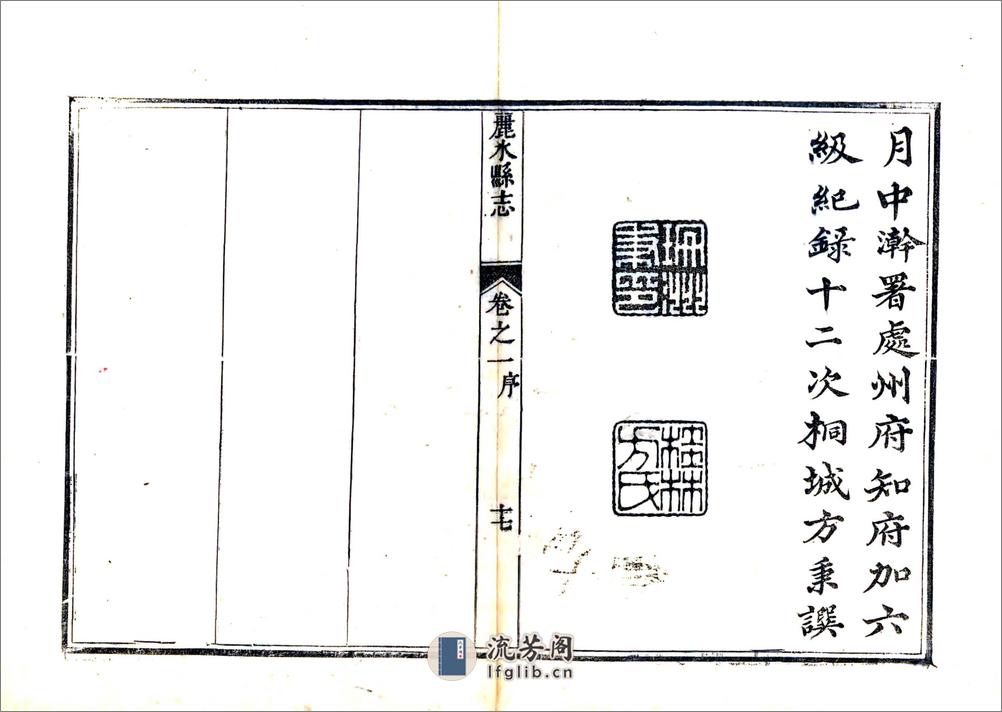 月中澣署處州府知府加六
級紀錄十二次桐城方秉譔
桂林方氏
麗水縣志
卷之一序
十七
流芳阁
lfglib.cn